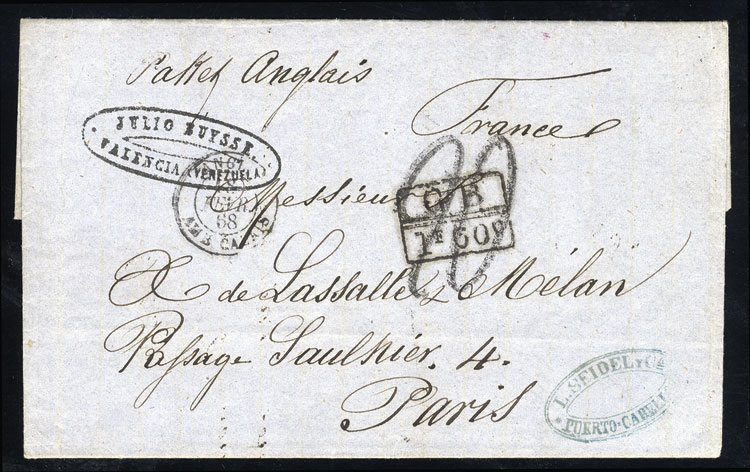 Paket Anglais
France
JULIO BUYSSE.
VALENCIA (VENEZUELA)
FEVR.
68
AMB. CALAIS
Messieurs
G B
1F 60c
X de Lassalle & Mélan
Passage Saulnier. 4.
Paris
L. SEIDEL Y Ca
PUERTO-CABELL